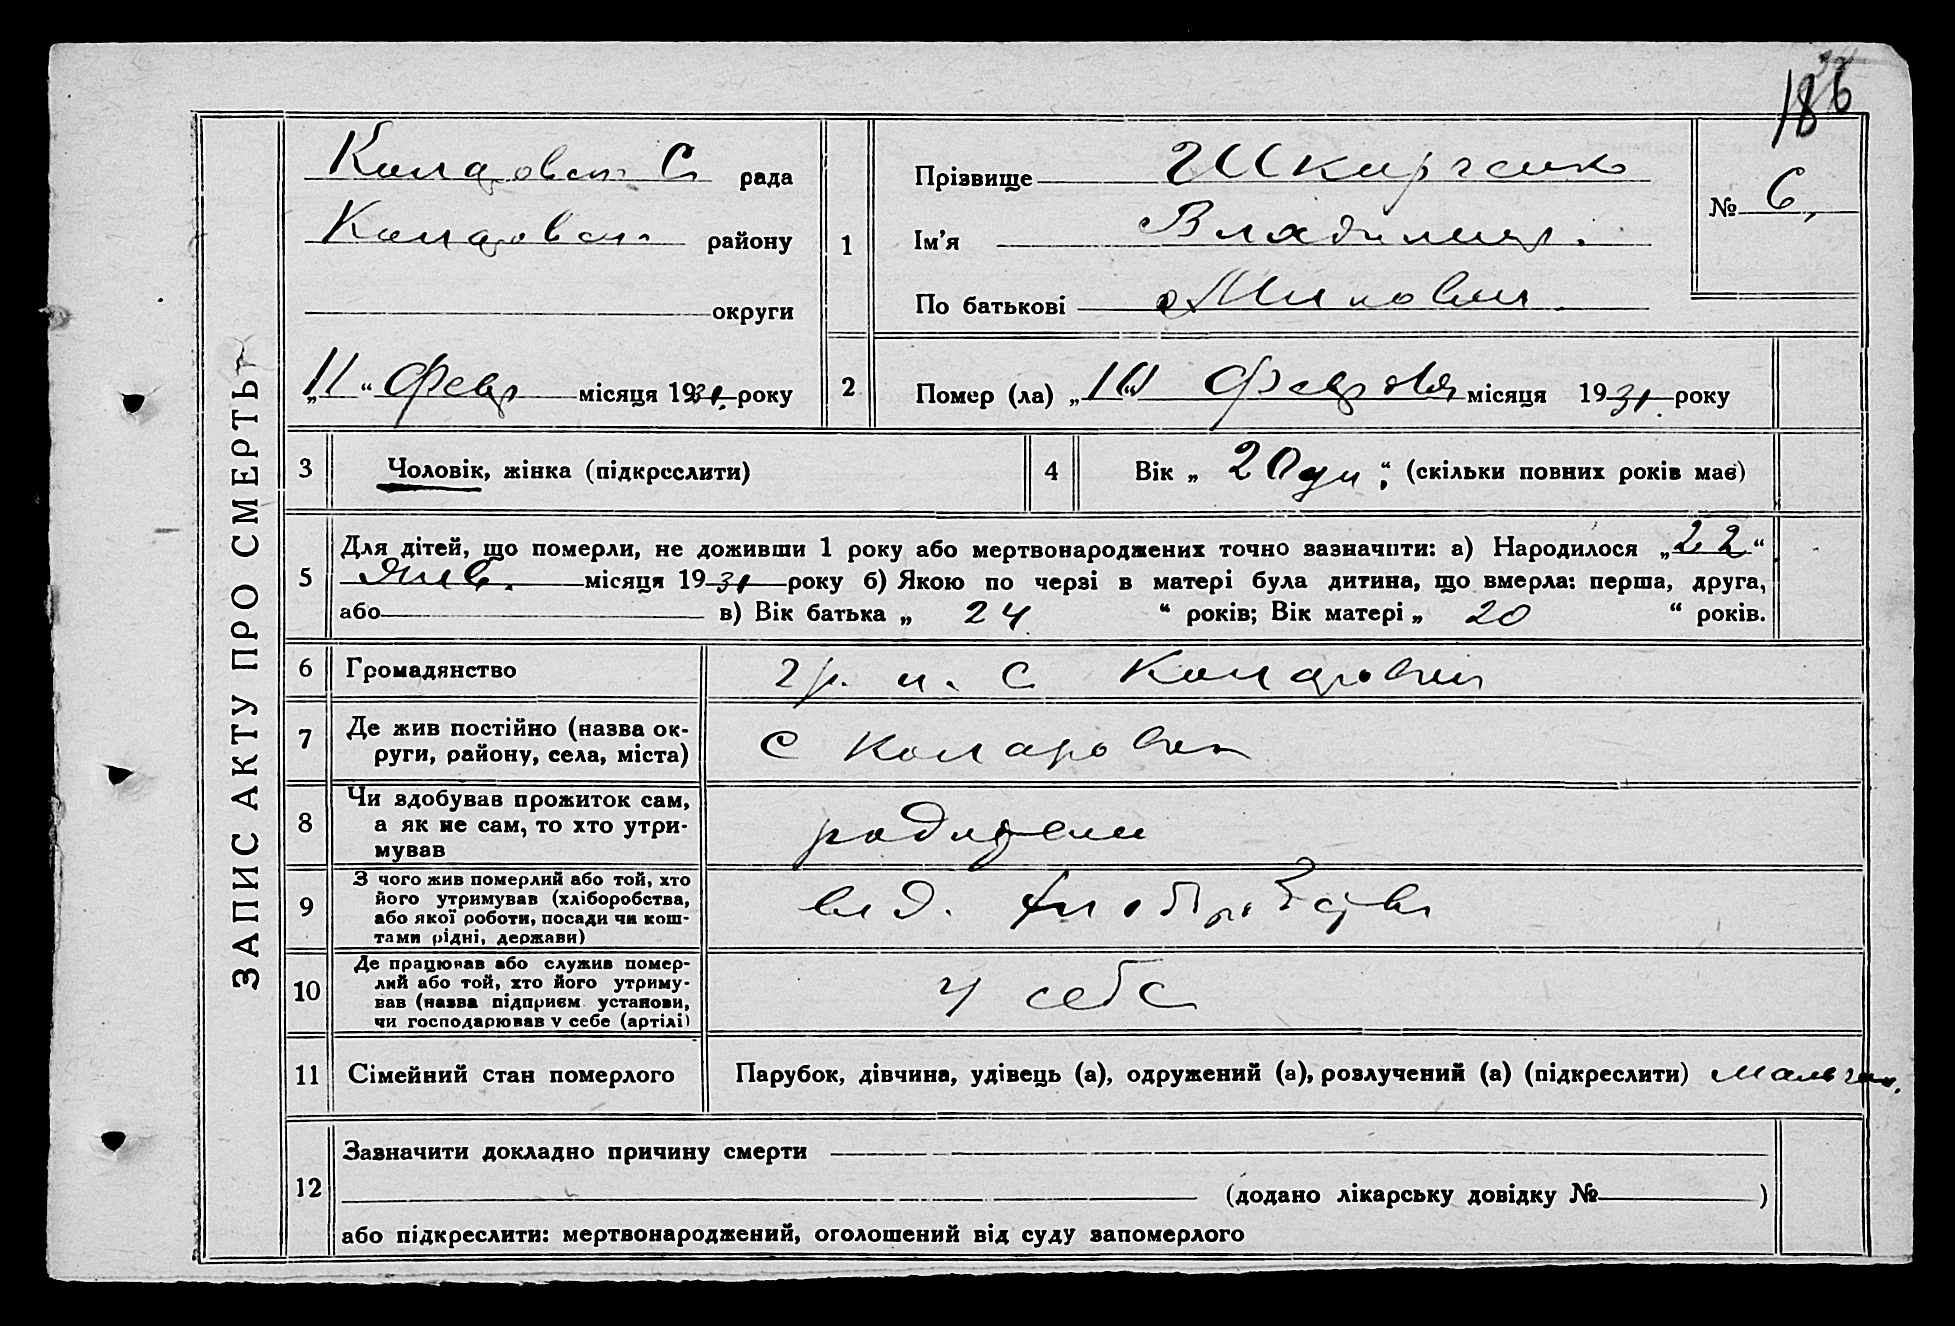 186
ЗАПИС АКТУ ПРО СМЕРТЬ
рада
району
округи
„11“ Февр місяця 1931 року
1
Прізвище Шкирченко
Ім’я Владимир.
По батькові
№ 6,
2
Помер (ла) „10“ Февраля місяця 1931 року
3 Чоловік, жінка (підкреслити)
4 Вік „20 дн“, (скільки повних років має)
5
Для дітей, що померли, не доживши 1 року або мертвонароджених точно зазначити: а) Народилося „22“
Янв. місяця 1931 року б) Якою по черзі в матері була дитина, що вмерла: перша, друга,
або в) Вік батька „ 24 “ років; Вік матері „ 20 “ років.
6 Громадянство гр. н. с
7 Де жив постійно (назва округи, району, села, міста) с
8 Чи здобував прожиток сам,
а як не сам, то хто утри-
мував
родители
9 З чого жив померлий або той, хто
його утримував (хліборобства,
або якої роботи, посади чи кош-
тами рідні, держави)
від. хлеборобства
10 Де працював або служив помер-
лий або той, хто його утриму-
вав (назва підприєм установи,
чи господарював у себе (артілі)
у себе
11 Сімейний стан померлого Парубок, дівчина, удівець (а), одружений (а), розлучений (а) (підкреслити) мальчик.
12
Зазначити докладно причину смерти
(додано лікарську довідку № )
або підкреслити: мертвонароджений, оголошений від суду запомерлого